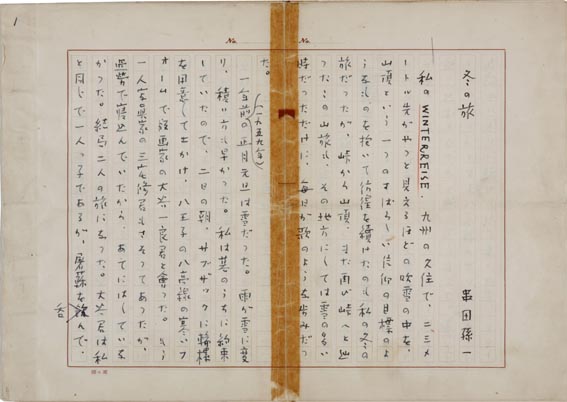 1
No.
No.
冬の旅
串田孫一
私のWINTERREISE. 九州の久住で、二三メ
ートル先がやっと見えるほどの吹雪の中を、
山頂という一つのすばらしい信仰の目標のよ
うなものを抱いて彷徨を続けたのも私の冬の
旅だったが、峠から山頂、また再び峠へと辿
ったこの山旅も、その地方にしては雪の多い
時だっただけに、毎日が歌のような歩みだっ
た。
(一九五九年)
一年前の正月元旦は雪だった。雨が雪に変
り、積り方も早かった。私は暮のうちに約束
していたので、二日の朝、サブザックに輪樏
を用意して出かけ、八王子の八高線の寒いフ
ォームで版画家の大谷一良君と会った。もう
一人写真家の三宅修君もさそってあったが、
風邪で寝込んでいたから、あてにはしていな
かった。結局二人の旅になった。大谷君は私
と同じで一人っ子であるが、屠蘇を飲んで、
呑